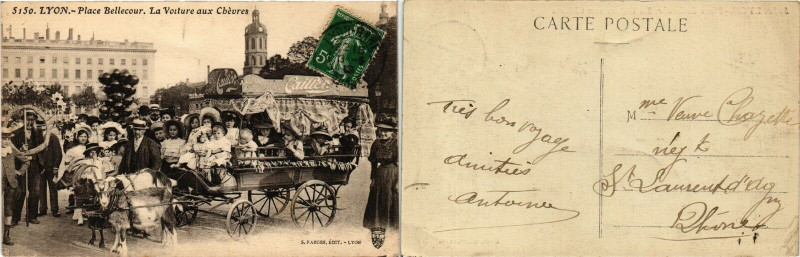 5150. LYON. - Place Bellecour. La Voiture aux Chèvres
5
S. FARGES, ÉDIT. - LYON
CARTE POSTALE
Très bon voyage
amitiés
Antoine
M me Veuve Chazette
St Laurent d'Ag ny
Rhône